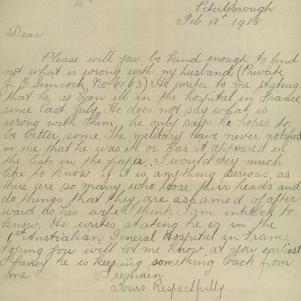 Peterborough
Feb 12th 1918
Dear
Please will you be kind enough to find
out what is wrong with my husband (Private
J. E. Simcock No 4163) He writes to me stating
that he as been ill in the hospital in France
since last July. He does not say what is
wrong with him, he only says he hopes to
be better, some. The military have never notified
me that he was ill or has it appeared in
the lists in the paper. I would very much
like to know if it is anything serious, as
there are so many who loose their heads and
do things that they are ashamed of after
ward as his wife I think I am intitled to
know. He writes stating he is in the
1st Australian General Hospital in France
hoping you will let me know, at your earliest
I fancy he is keeping something back from
me I remain
Yours Respectfully